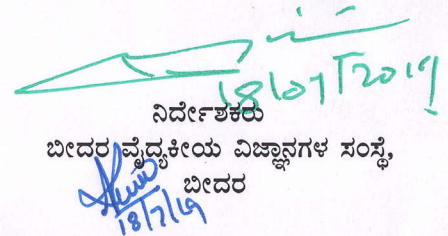 18/07/2019
ನಿರ್ದೇಶಕರು
ಬೀದರ ವೈದ್ಯಕೀಯ ವಿಜ್ಞಾನಗಳ ಸಂಸ್ಥೆ,
ಬೀದರ
18/7/19